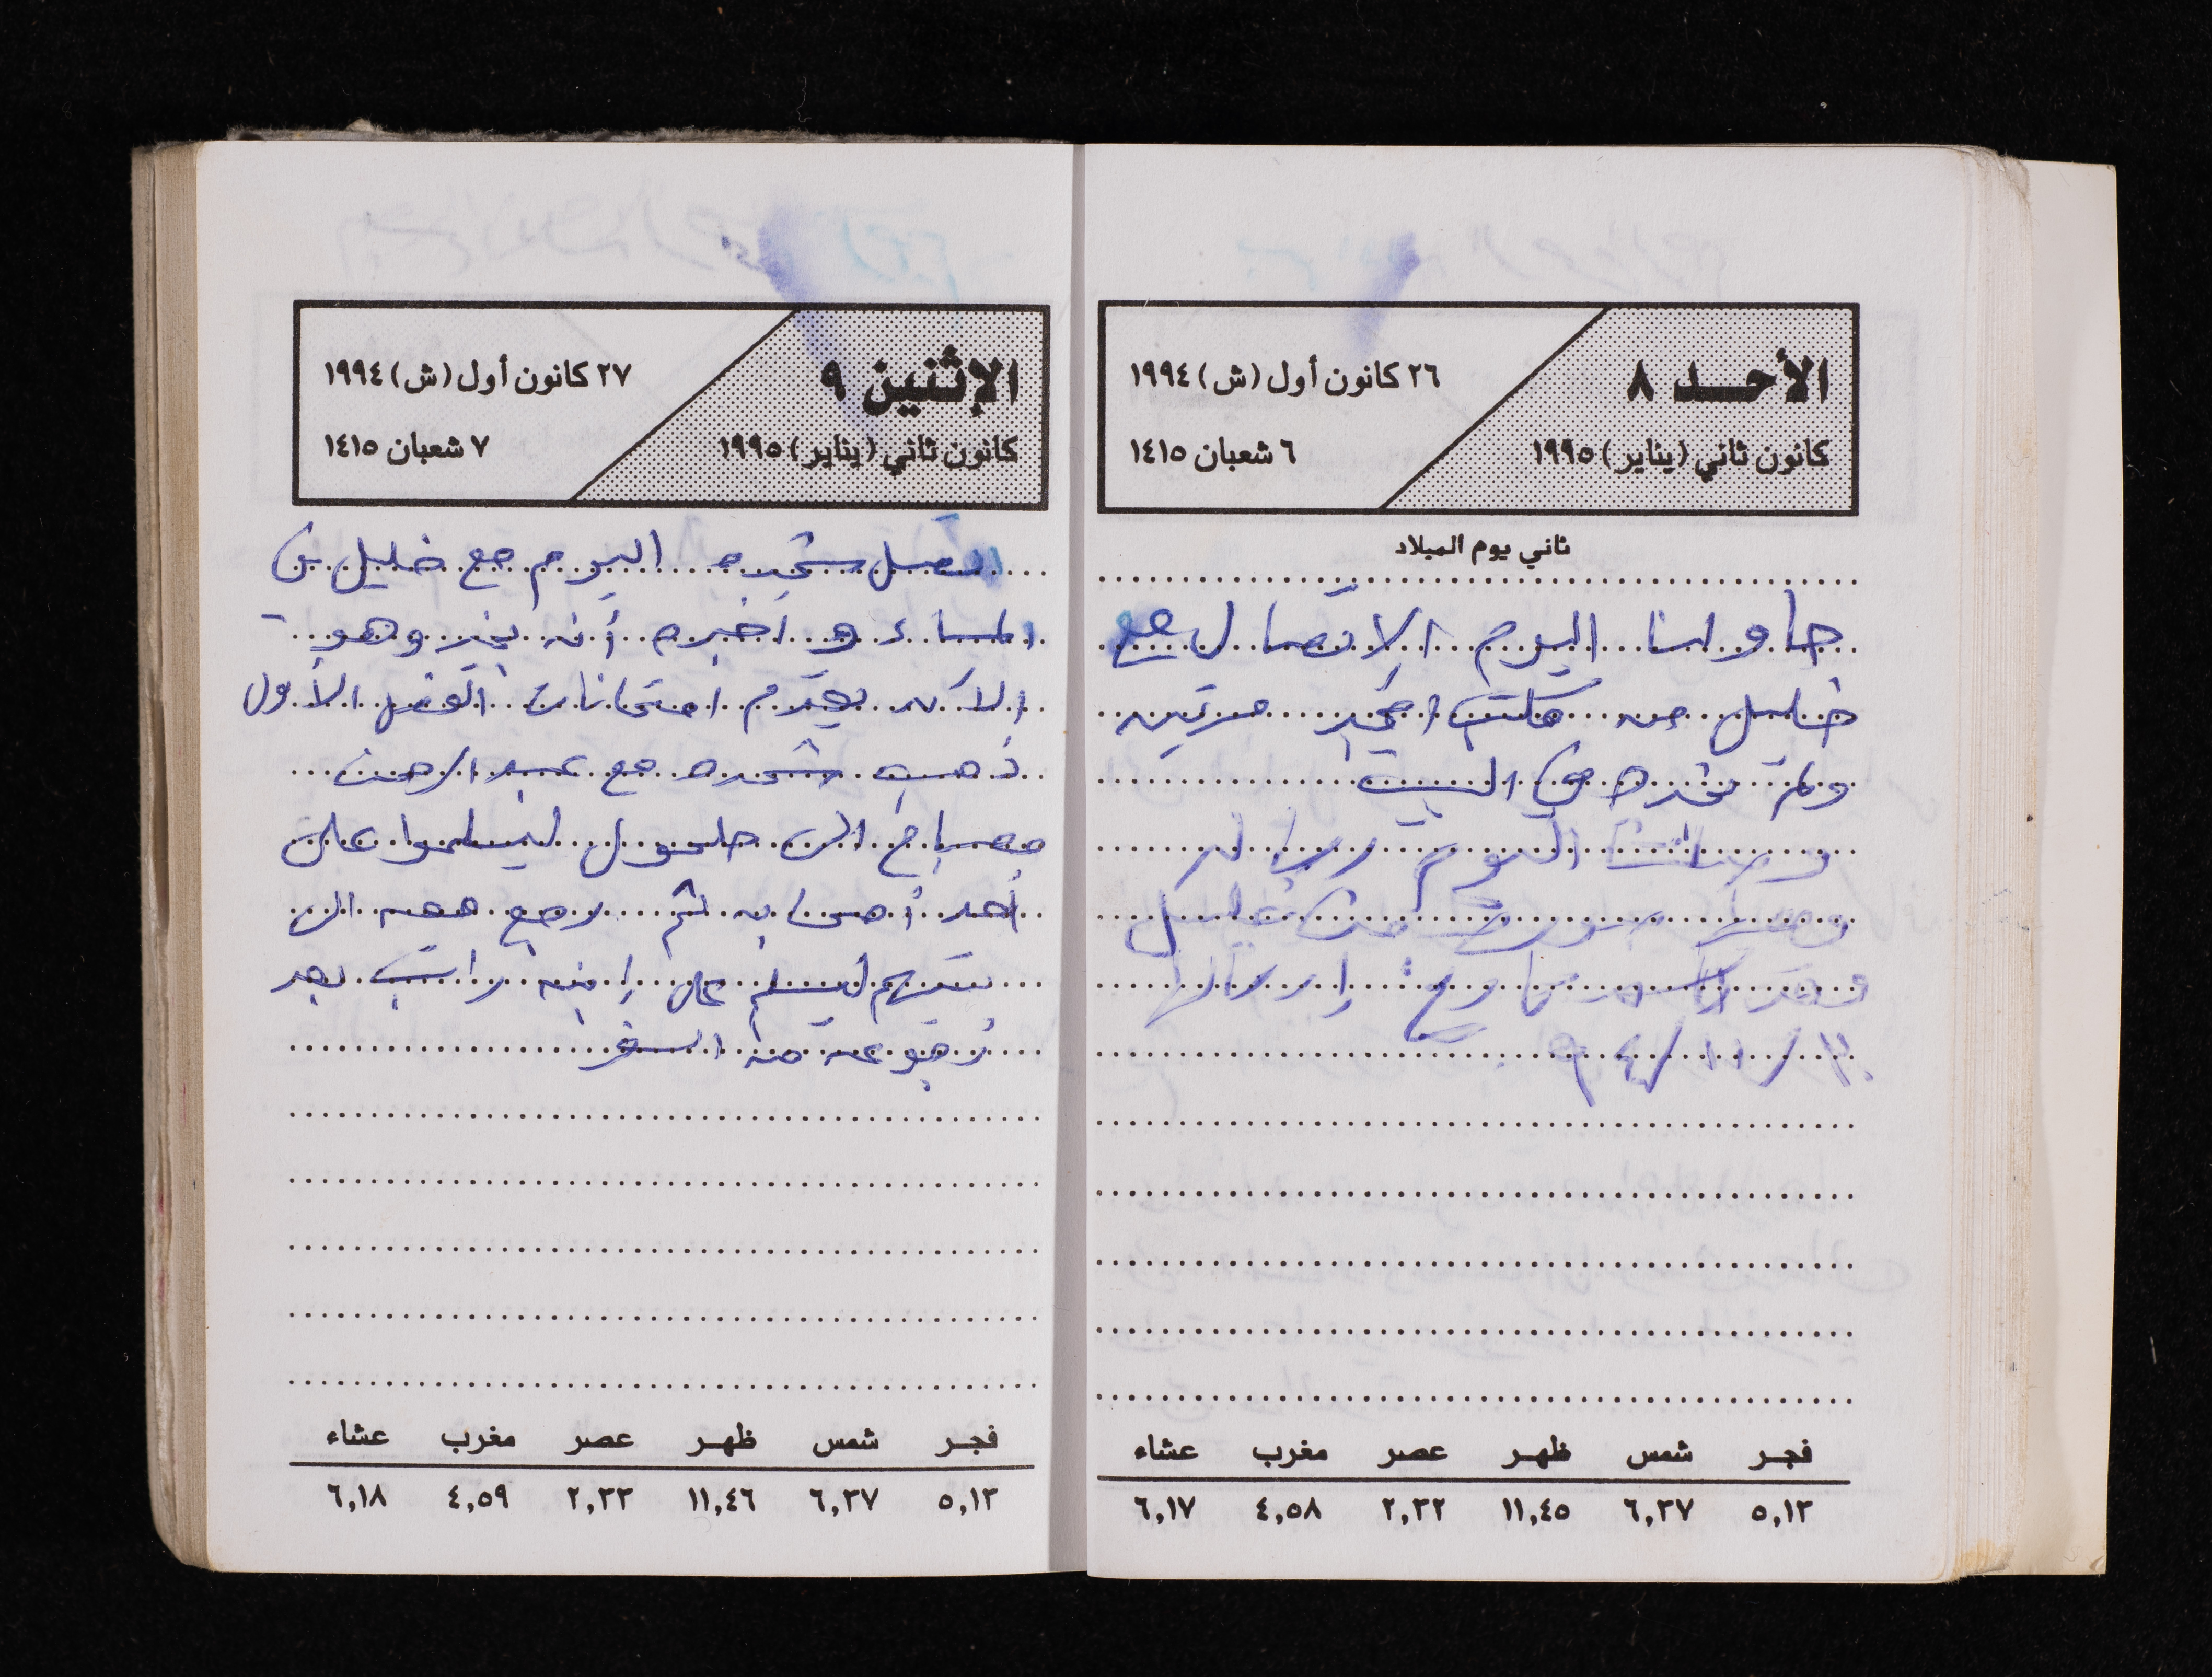 الأحد ٨
٢٦ كانون أول (ش) ١٩٩٤
كانون ثاني (يناير) ١٩٩٥
٦ شعبان ١٤١٥
ثاني يوم الميلاد
حاولنا اليوم الاتصال مع
خليل من مكتب امجد مرتين
ولم نجده في البيت
وصلت اليوم رسالة
من خليل
وقد كان تاريخ إرسالها
٩٤/١١/٣٠
فجر شمس ظهر عصر مغرب عشاء
٥,١٢ ٦,٣٧ ١١,٤٥ ٢,٣٢ ٤,٥٨ ٦,١٧
الإثنين ٩
٢٧ كانون أول (ش) ١٩٩٤
كانون ثاني (يناير) ١٩٩٥
٧ شعبان ١٤١٥
اتصل شحده اليوم مع خليل في
المساء و اخبره أنه بخير وهو
الآن يقدم امتحانات الفصل الأول
ذهب شحده مع عبد الرحمن
مصباح الى حلحول ليسلموا على
أحد أصحابه ثم رجع معه الى
بيتهم ليسلم على إبنه راتب بعد
رجوعه من السفر
فجر شمس ظهر عصر مغرب عشاء
٥,١٢ ٦,٣٧ ١١,٤٦ ٢,٣٣ ٤,٥٩ ٦,١٨